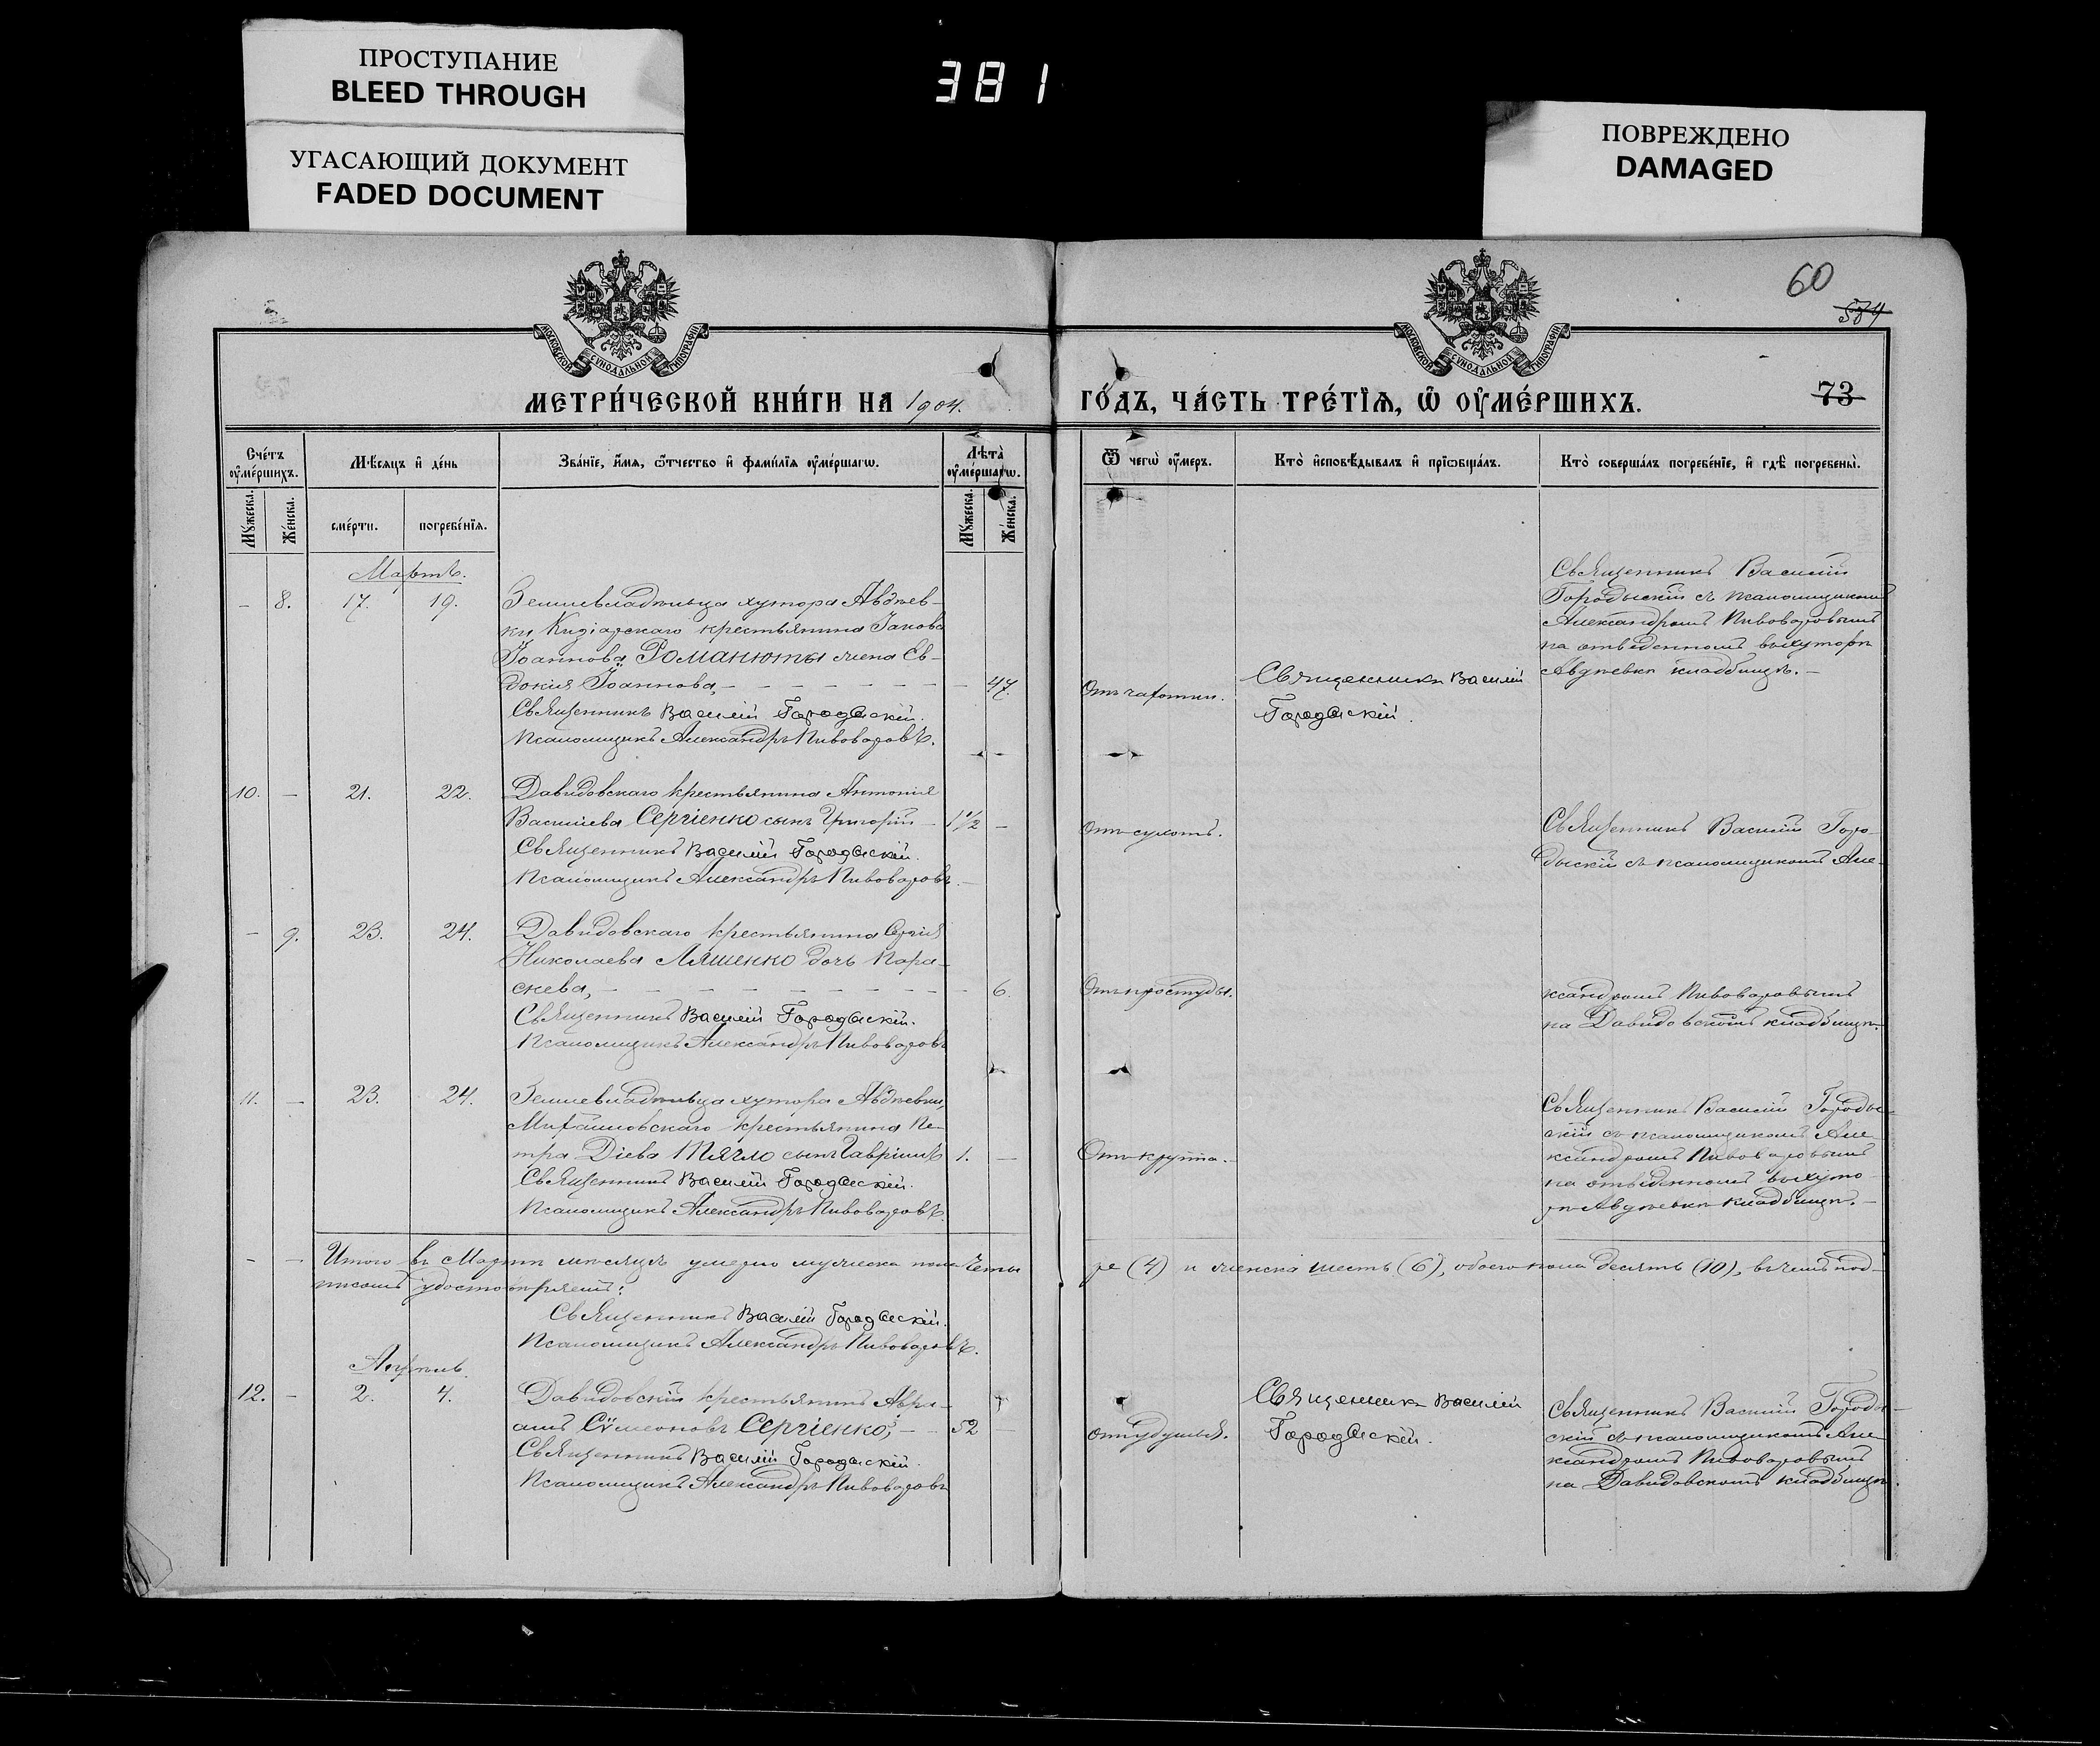 ПРОСТУПАНИЕ
BLEED THROUGH
УГАСАЮЩИЙ ДОКУМЕНТ
FADED DOCUMENT
381
ПОВРЕЖДЕНО
DAMAGED
60
МОСКОВСКОЙ СѴНОДАЛЬНОЙ ТИПОГРАФІИ
МОСКОВСКОЙ СѴНОДАЛЬНОЙ ТИПОГРАФІИ
МЕТРИ́ЧЕСКОЙ КНИ́ГИ НА 1904.
ГО́ДЪ, ЧА́СТЬ ТРЕ́ТЇѦ, Ѿ ОУ҆МЕ́РШИХЪ.
73
Сче́тъ оу҆ме́ршихъ.
Мѣ́сяцъ и҆ де́нь
Зва́нїе, и҆́мя, ѻ҆́тчество и҆ фами́лїя оу҆ме́ршагѡ.
Лѣ́та оу҆ме́ршагѡ.
Ѿ чегѡ̀ оу҆́меръ.
Кто̀ и҆сповѣ́дывалъ и҆ прїѡбща́лъ.
Кто̀ соверша́лъ погребе́нїе, и҆ гдѣ̀ погребены̀.
Мꙋ́жеска.
Же́нска.
сме́рти.
погребе́нїя.
Мꙋ́жеска.
Же́нска.
Мартъ.
– 8. 17. 19.
Землевладѣльца хутора Авдѣев-
ки, крестьянина Іакова
Іоаннова Романюты жена Ев-
докія Іоаннова, – 47.
Священникъ Василій Городыскій.
Псаломщикъ Александръ Пивоваровъ.
Отъ чахотки.
Священникъ Василій
Городыскій.
Священникъ Василій
Городыскій съ псаломщикомъ
Александромъ Пивоваровымъ
на отведенномъ въ хуторѣ
Авдѣевкѣ кладбищѣ. –
10. – 21. 22.
Давидовскаго крестьянина Антонія
Васильева Сергіенко сынъ Григорій – 1 1/2 –
Священникъ Василій Городыскій.
Псаломщикъ Александръ Пивоваровъ. –
Отъ сухотъ.
Священникъ Василій Горо-
дыскій съ псаломщикомъ Але-
– 9. 23. 24.
Давидовскаго крестьянина Сергія
Николаева Ляшенко дочь Пара-
скева, – 6.
Священникъ Василій Городыскій.
Псаломщикъ Александръ Пивоваровъ
Отъ простуды.
ксандромъ Пивоваровымъ
на Давидовскомъ кладбищѣ.
11. – 23. 24.
Землевладѣльца хутора Авдѣевки,
Михайловскаго крестьянина Пе-
тра Діева Тягло сынъ Гавріилъ 1. –
Священникъ Василій Городыскій.
Псаломщикъ Александръ Пивоваровъ.
Отъ крупа. –
Священникъ Василій Городы-
скій съ псаломщикомъ Але-
ксандромъ Пивоваровымъ
на отведенномъ въ хуто-
рѣ Авдѣевкѣ кладбищѣ. –
– – Итого въ Мартѣ мѣсяцѣ умерло мужеска пола четы
ре (4) и женска шесть (6), обоего пола десять (10), въ чемъ под-
писомъ удостовѣряемъ:
Священникъ Василій Городыскій.
Псаломщикъ Александръ Пивоваровъ.
Апрѣль.
12. – 2. 4.
Давидовскій крестьянинъ Авра-
амъ Сѵмеоновъ Сергіенко, – 52 –
Священникъ Василій Городыскій.
Псаломщикъ Александръ Пивоваровъ
отъ удушья.
Священникъ Василій
Городыскій.
Священникъ Василій Городы-
скій съ псаломщикомъ Але-
ксандромъ Пивоваровымъ
на Давидовскомъ кладбищѣ.